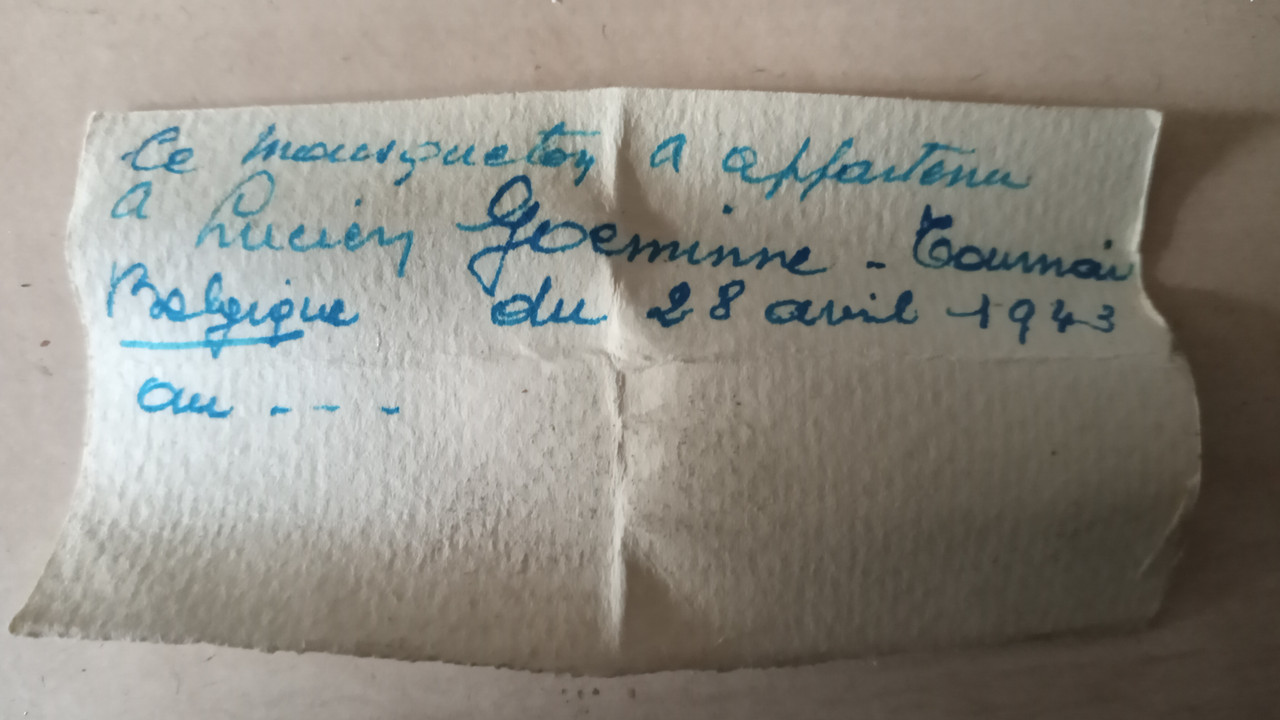 Ce mousqueton a appartenu
a Lucien Goeminne - Tournai
Belgique du 28 avril 1943
au - - -